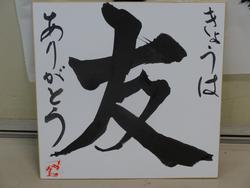 きょうは
友
ありがとう